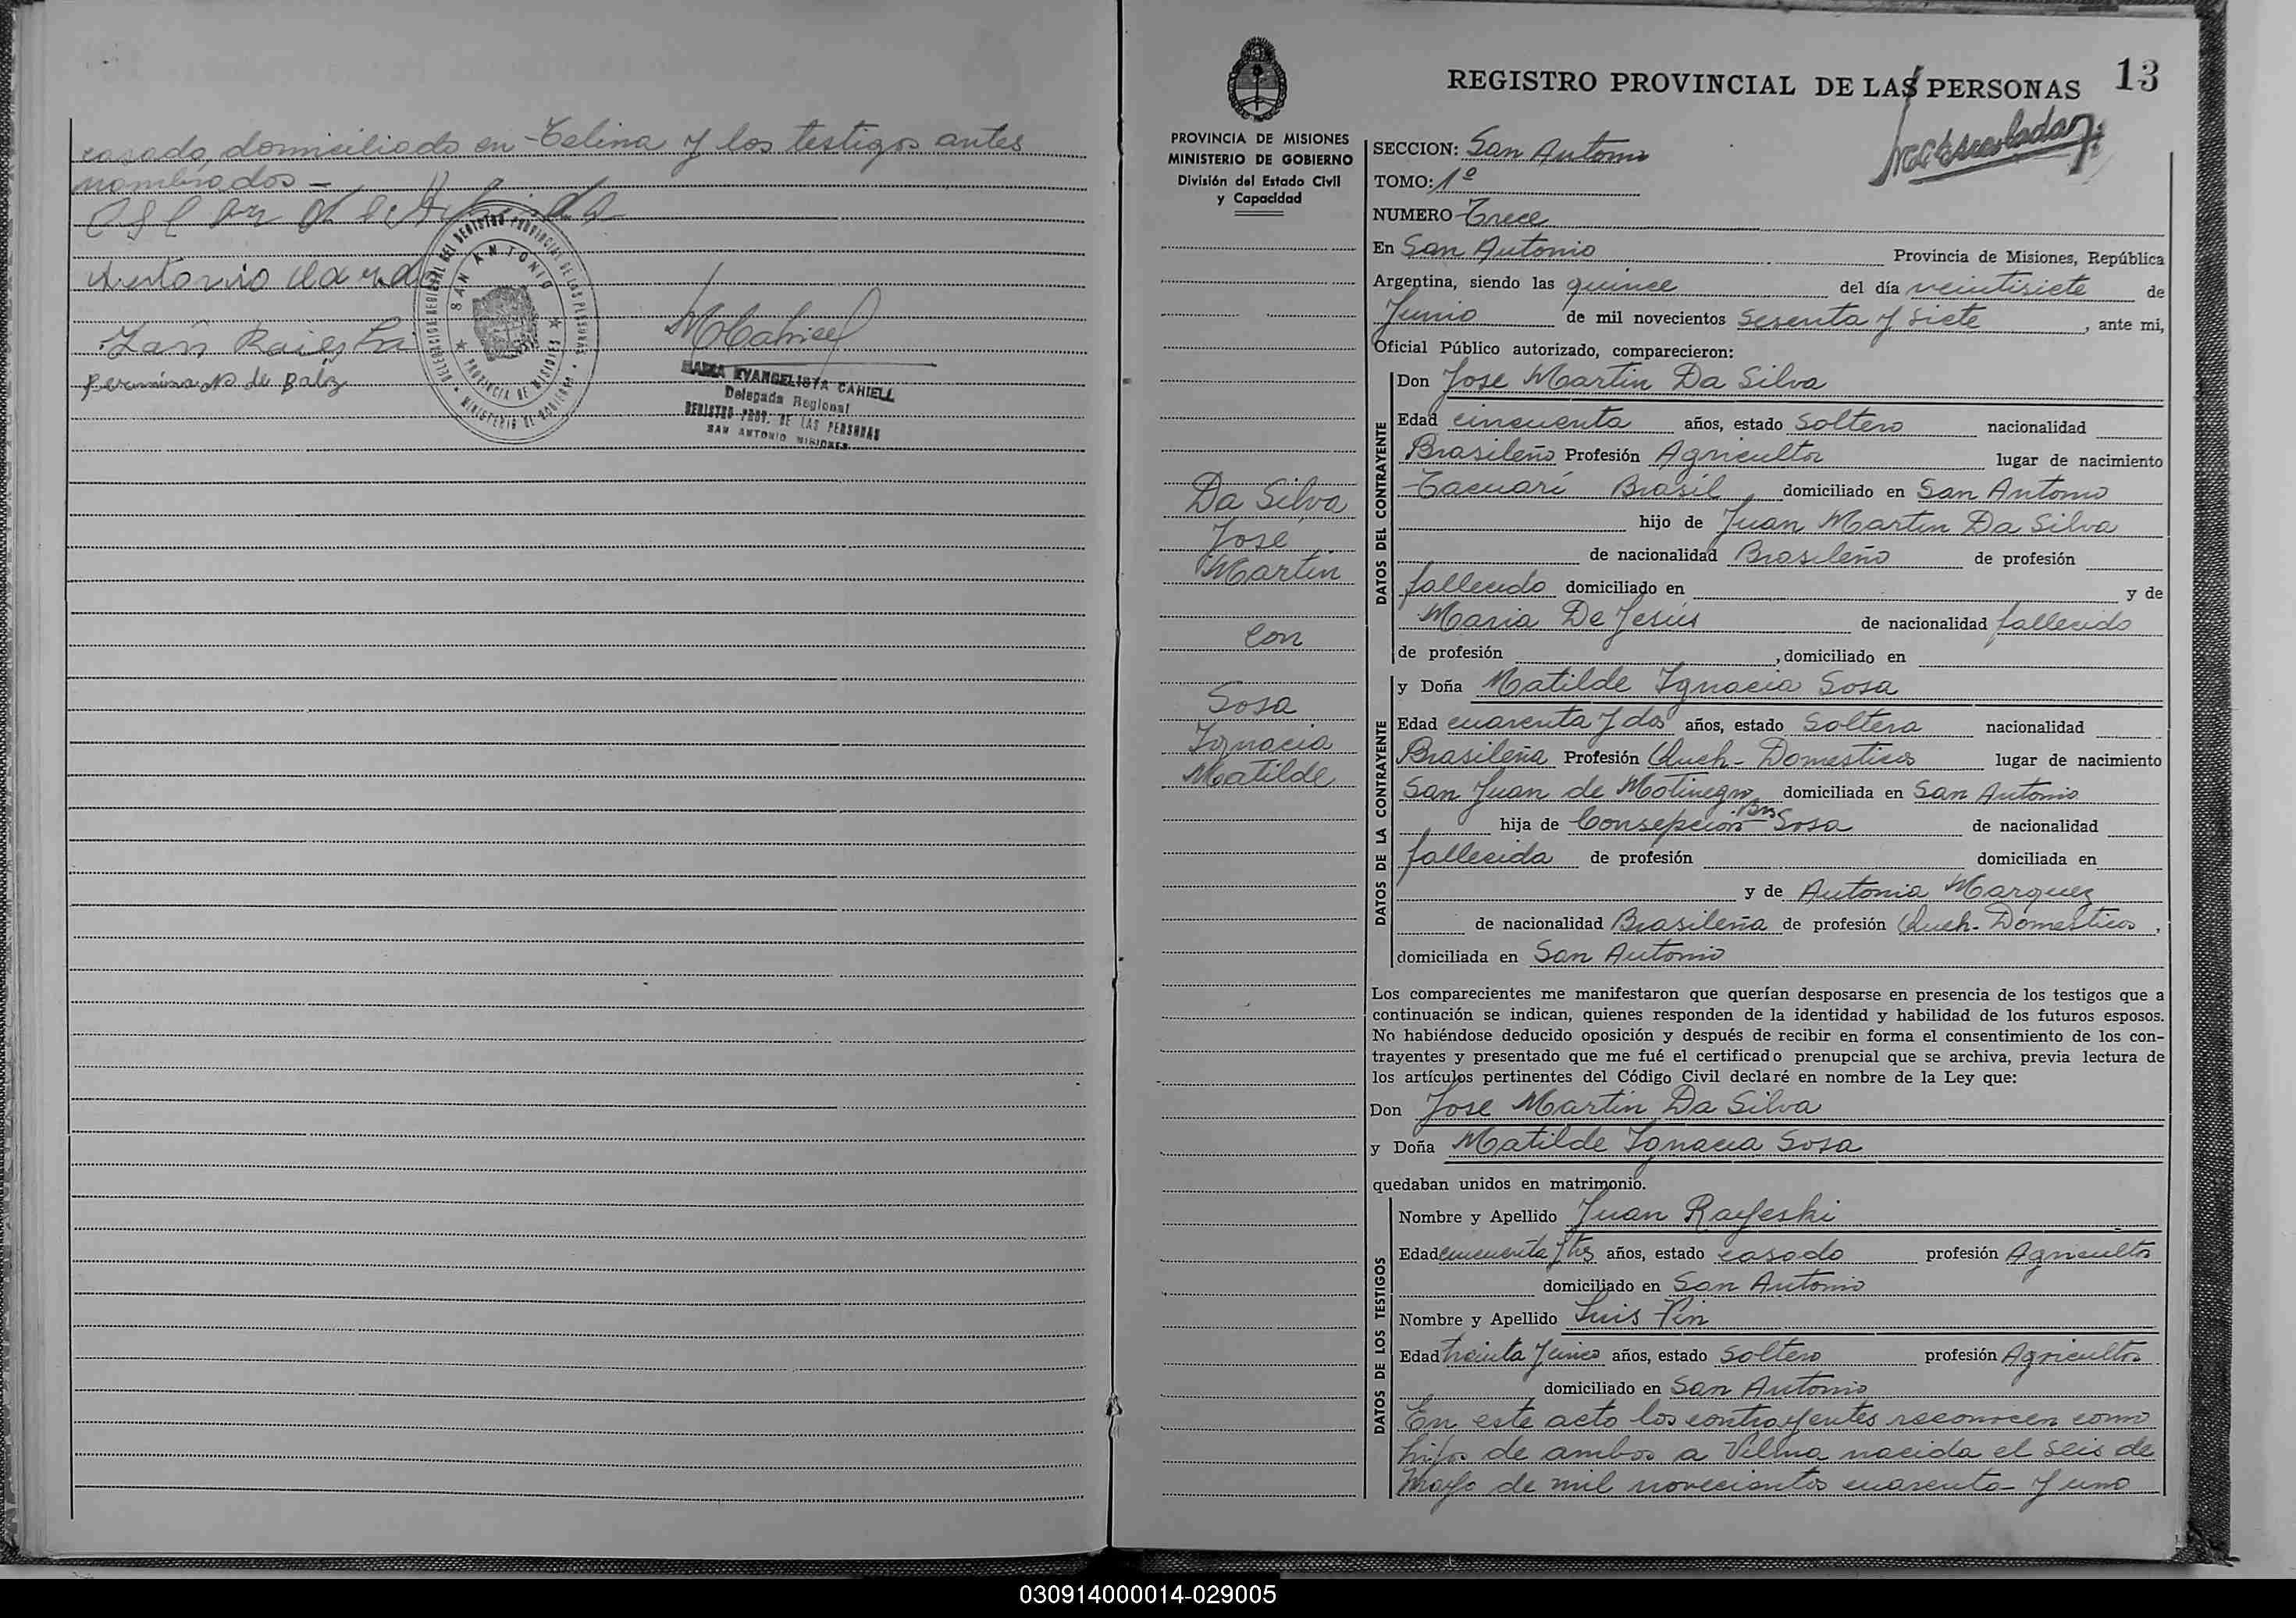 casado, domiciliado en Celina y los testigos antes
nombrados -
DELEGACION REGIONAL DEL REGISTRO PROVINCIAL DE LAS PERSONAS
SAN ANTONIO
PROVINCIA DE MISIONES
MINISTERIO DE GOBIERNO
Antonio
MCahiell
MARIA EVANGELISTA CAHIELL
Delegada Regional
REGISTRO PROV. DE LAS PERSONAS
SAN ANTONIO MISIONES
13
REGISTRO PROVINCIAL DE LAS PERSONAS
PROVINCIA DE MISIONES
MINISTERIO DE GOBIERNO
División del Estado Civil
y Capacidad
Da Silva
Jose
Martin
con
Sosa
Ignacia
Matilde
SECCION: San Antonio
TOMO: 1º
NUMERO Trece
En San Antonio Provincia de Misiones, República
Argentina, siendo las quince del día veintisiete de
Junio de mil novecientos Sesenta y Siete, ante mi,
Oficial Público autorizado, comparecieron:
DATOS DEL CONTRAYENTE
Don Jose Martin Da Silva
Edad cincuenta años, estado Soltero nacionalidad
Brasileño Profesión Agricultor lugar de nacimiento
Tacuarí Brasil, domiciliado en San Antonio
hijo de Juan Martin Da Silva
de nacionalidad Brasileño de profesión
fallecido domiciliado en y de
Maria De Jesús de nacionalidad fallecido
de profesión , domiciliado en
DATOS DE LA CONTRAYENTE
y Doña Matilde Ignacia Sosa
Edad cuarenta y dos años, estado Soltera nacionalidad
Brasileña Profesión Queh- Domesticos lugar de nacimiento
San Juan de Motinegro Bs domiciliada en San Antonio
hija de Consepcion Sosa de nacionalidad
fallecida de profesión domiciliada en
y de Antonia Marquez
de nacionalidad Brasileña de profesión Queh- Domesticos,
domiciliada en San Antonio
Los comparecientes me manifestaron que querían desposarse en presencia de los testigos que a
continuación se indican, quienes responden de la identidad y habilidad de los futuros esposos.
No habiéndose deducido oposición y después de recibir en forma el consentimiento de los con-
trayentes y presentado que me fué el certificado prenupcial que se archiva, previa lectura de
los artículos pertinentes del Código Civil declaré en nombre de la Ley que:
Don Jose Martin Da Silva
y Doña Matilde Ignacia Sosa
quedaban unidos en matrimonio.
DATOS DE LOS TESTIGOS
Nombre y Apellido Juan Rayeski
Edad cincuenta y tres años, estado casado profesión Agricultor
domiciliado en San Antonio
Nombre y Apellido Luis Pin
Edad treinta y cinco años, estado Soltero profesión Agricultor
domiciliado en San Antonio
En este acto los contrayentes reconocen como
hijos de ambos a Vilma nacida el seis de
Mayo de mil novecientos cuarenta y uno
030914000014-029005